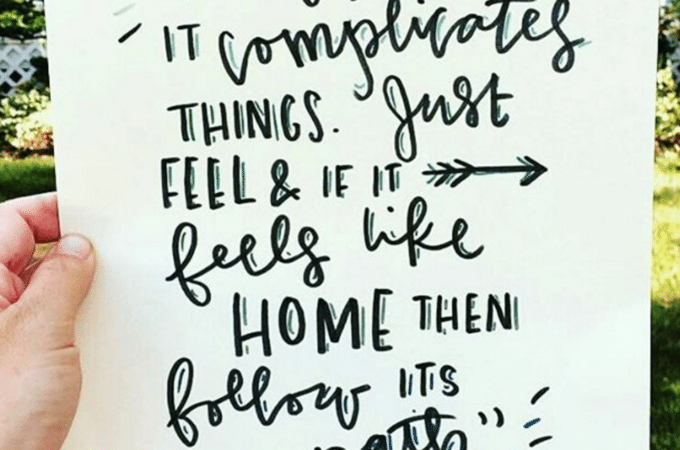 IT complicates
THINGS. Just
FEEL & IF IT
feels like
HOME THEN
follow ITS
path"